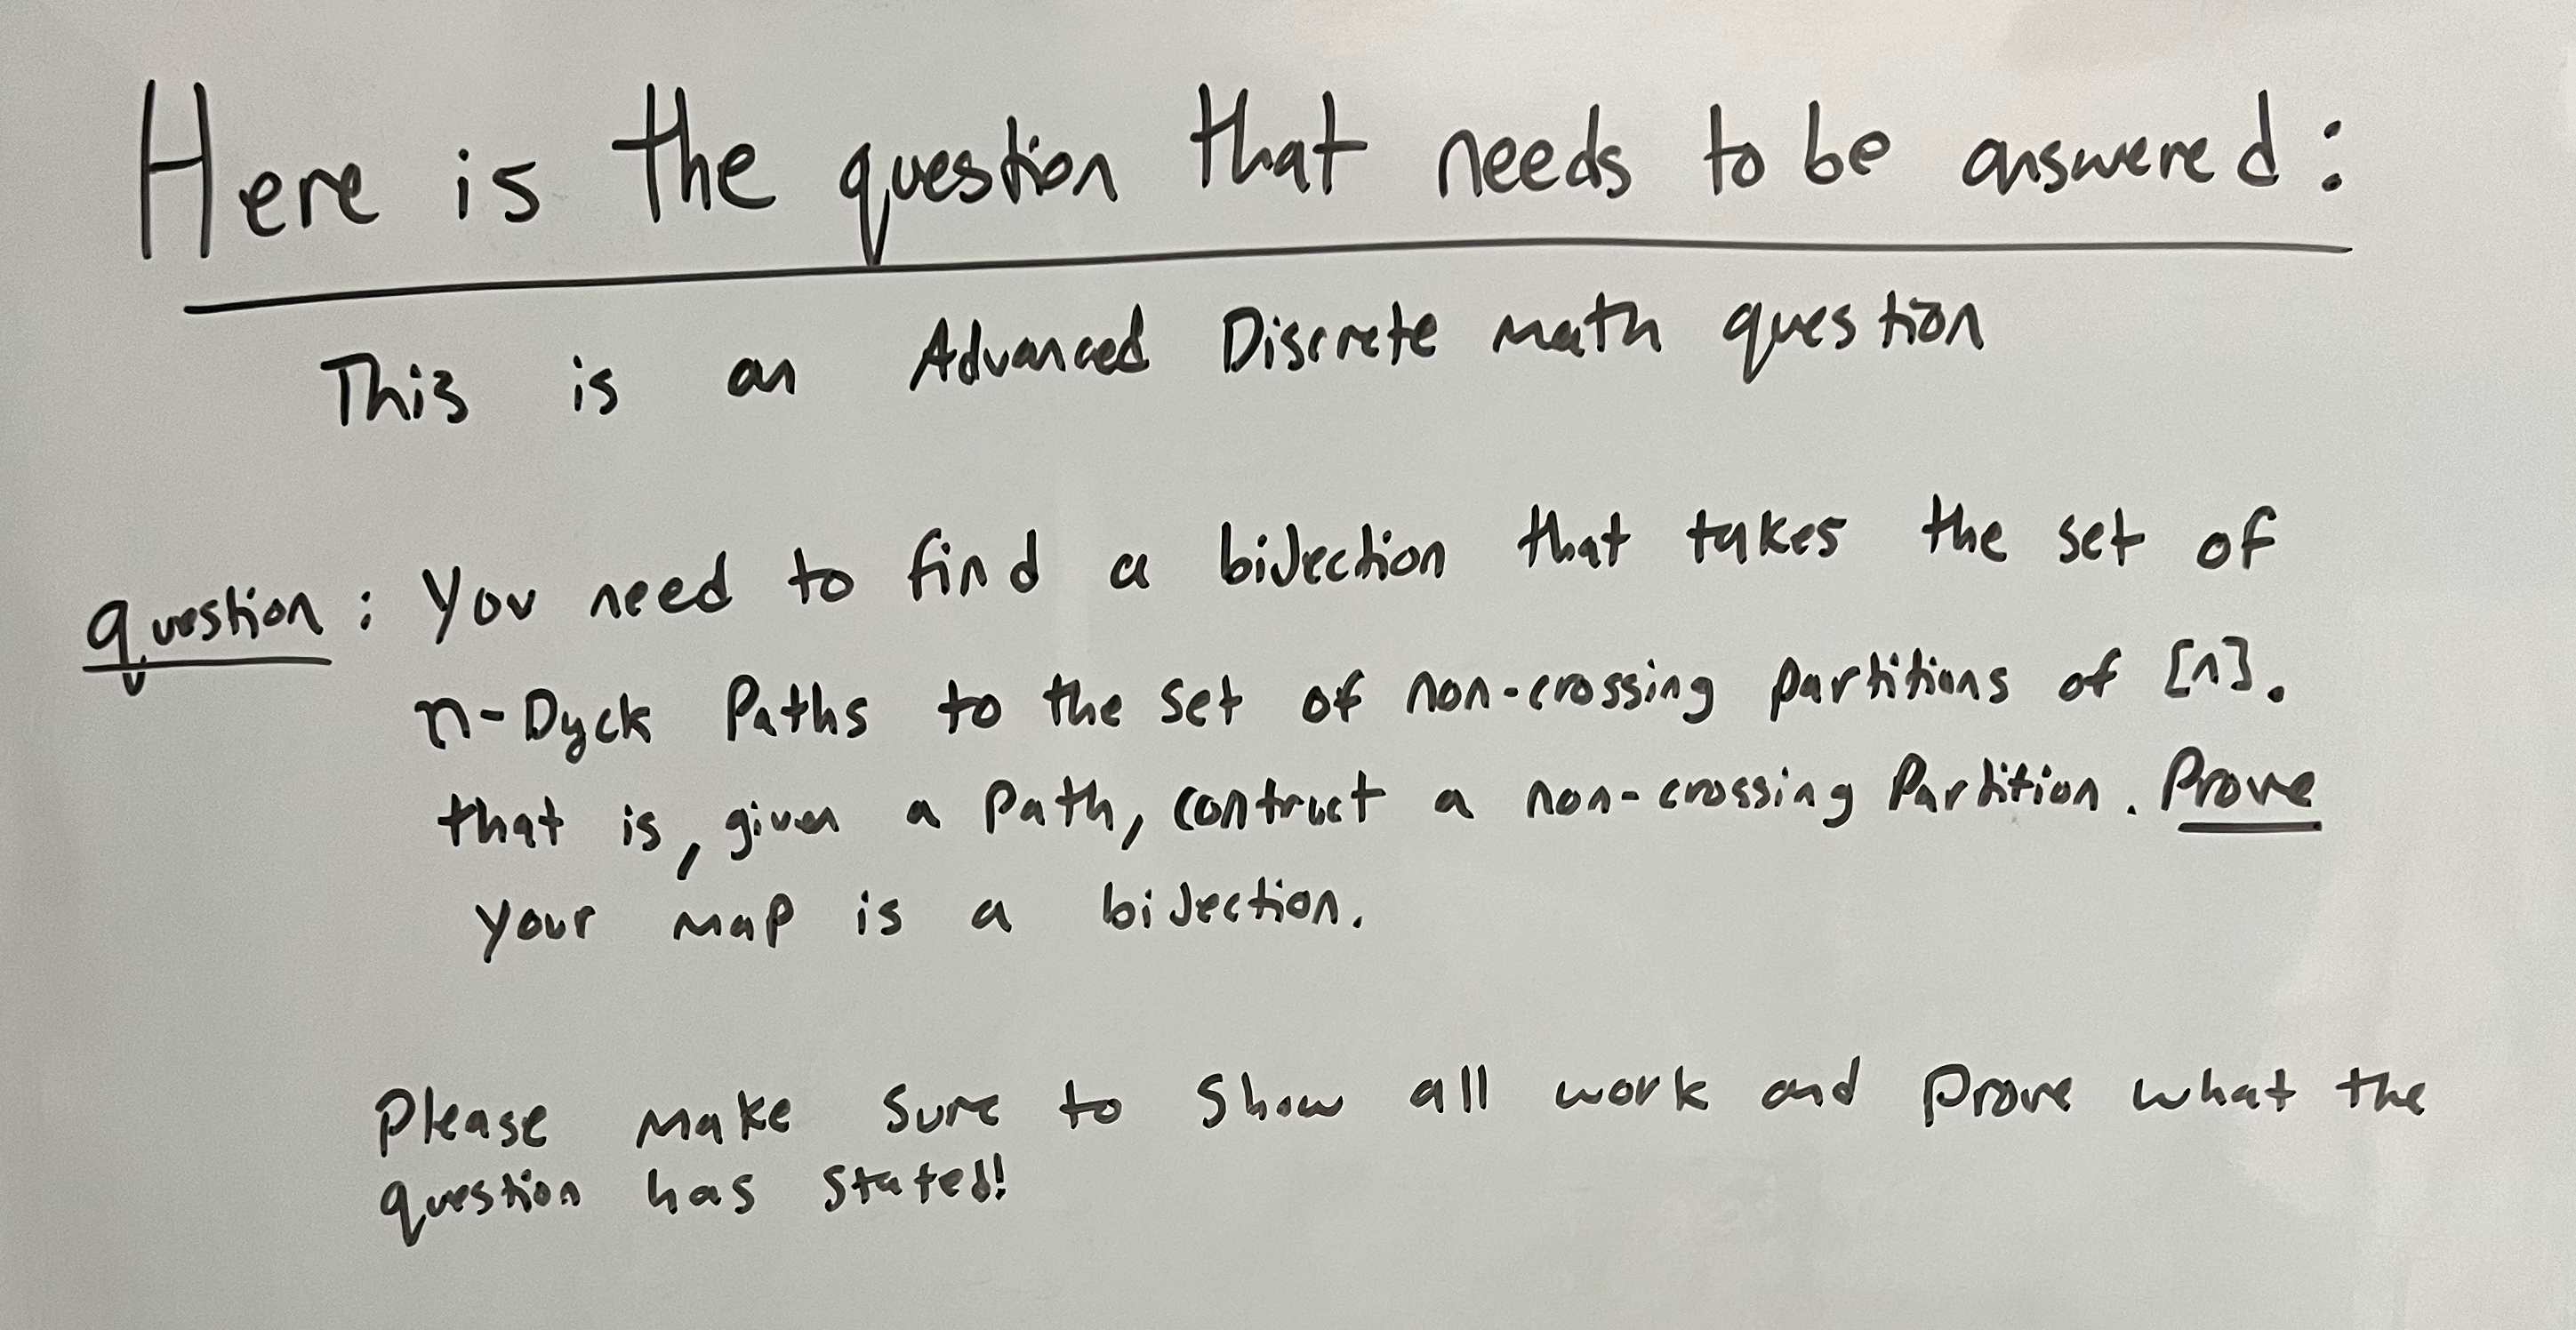 Here is the question that needs to be answered:
This is an Advanced Discrete math question
question: You need to find a bijection that takes the set of
n-Dyck Paths to the set of non-crossing partitions of [n].
that is, given a path, contruct a non-crossing Partition. Prove
your map is a bijection.
Please make sure to show all work and prove what the
question has stated!